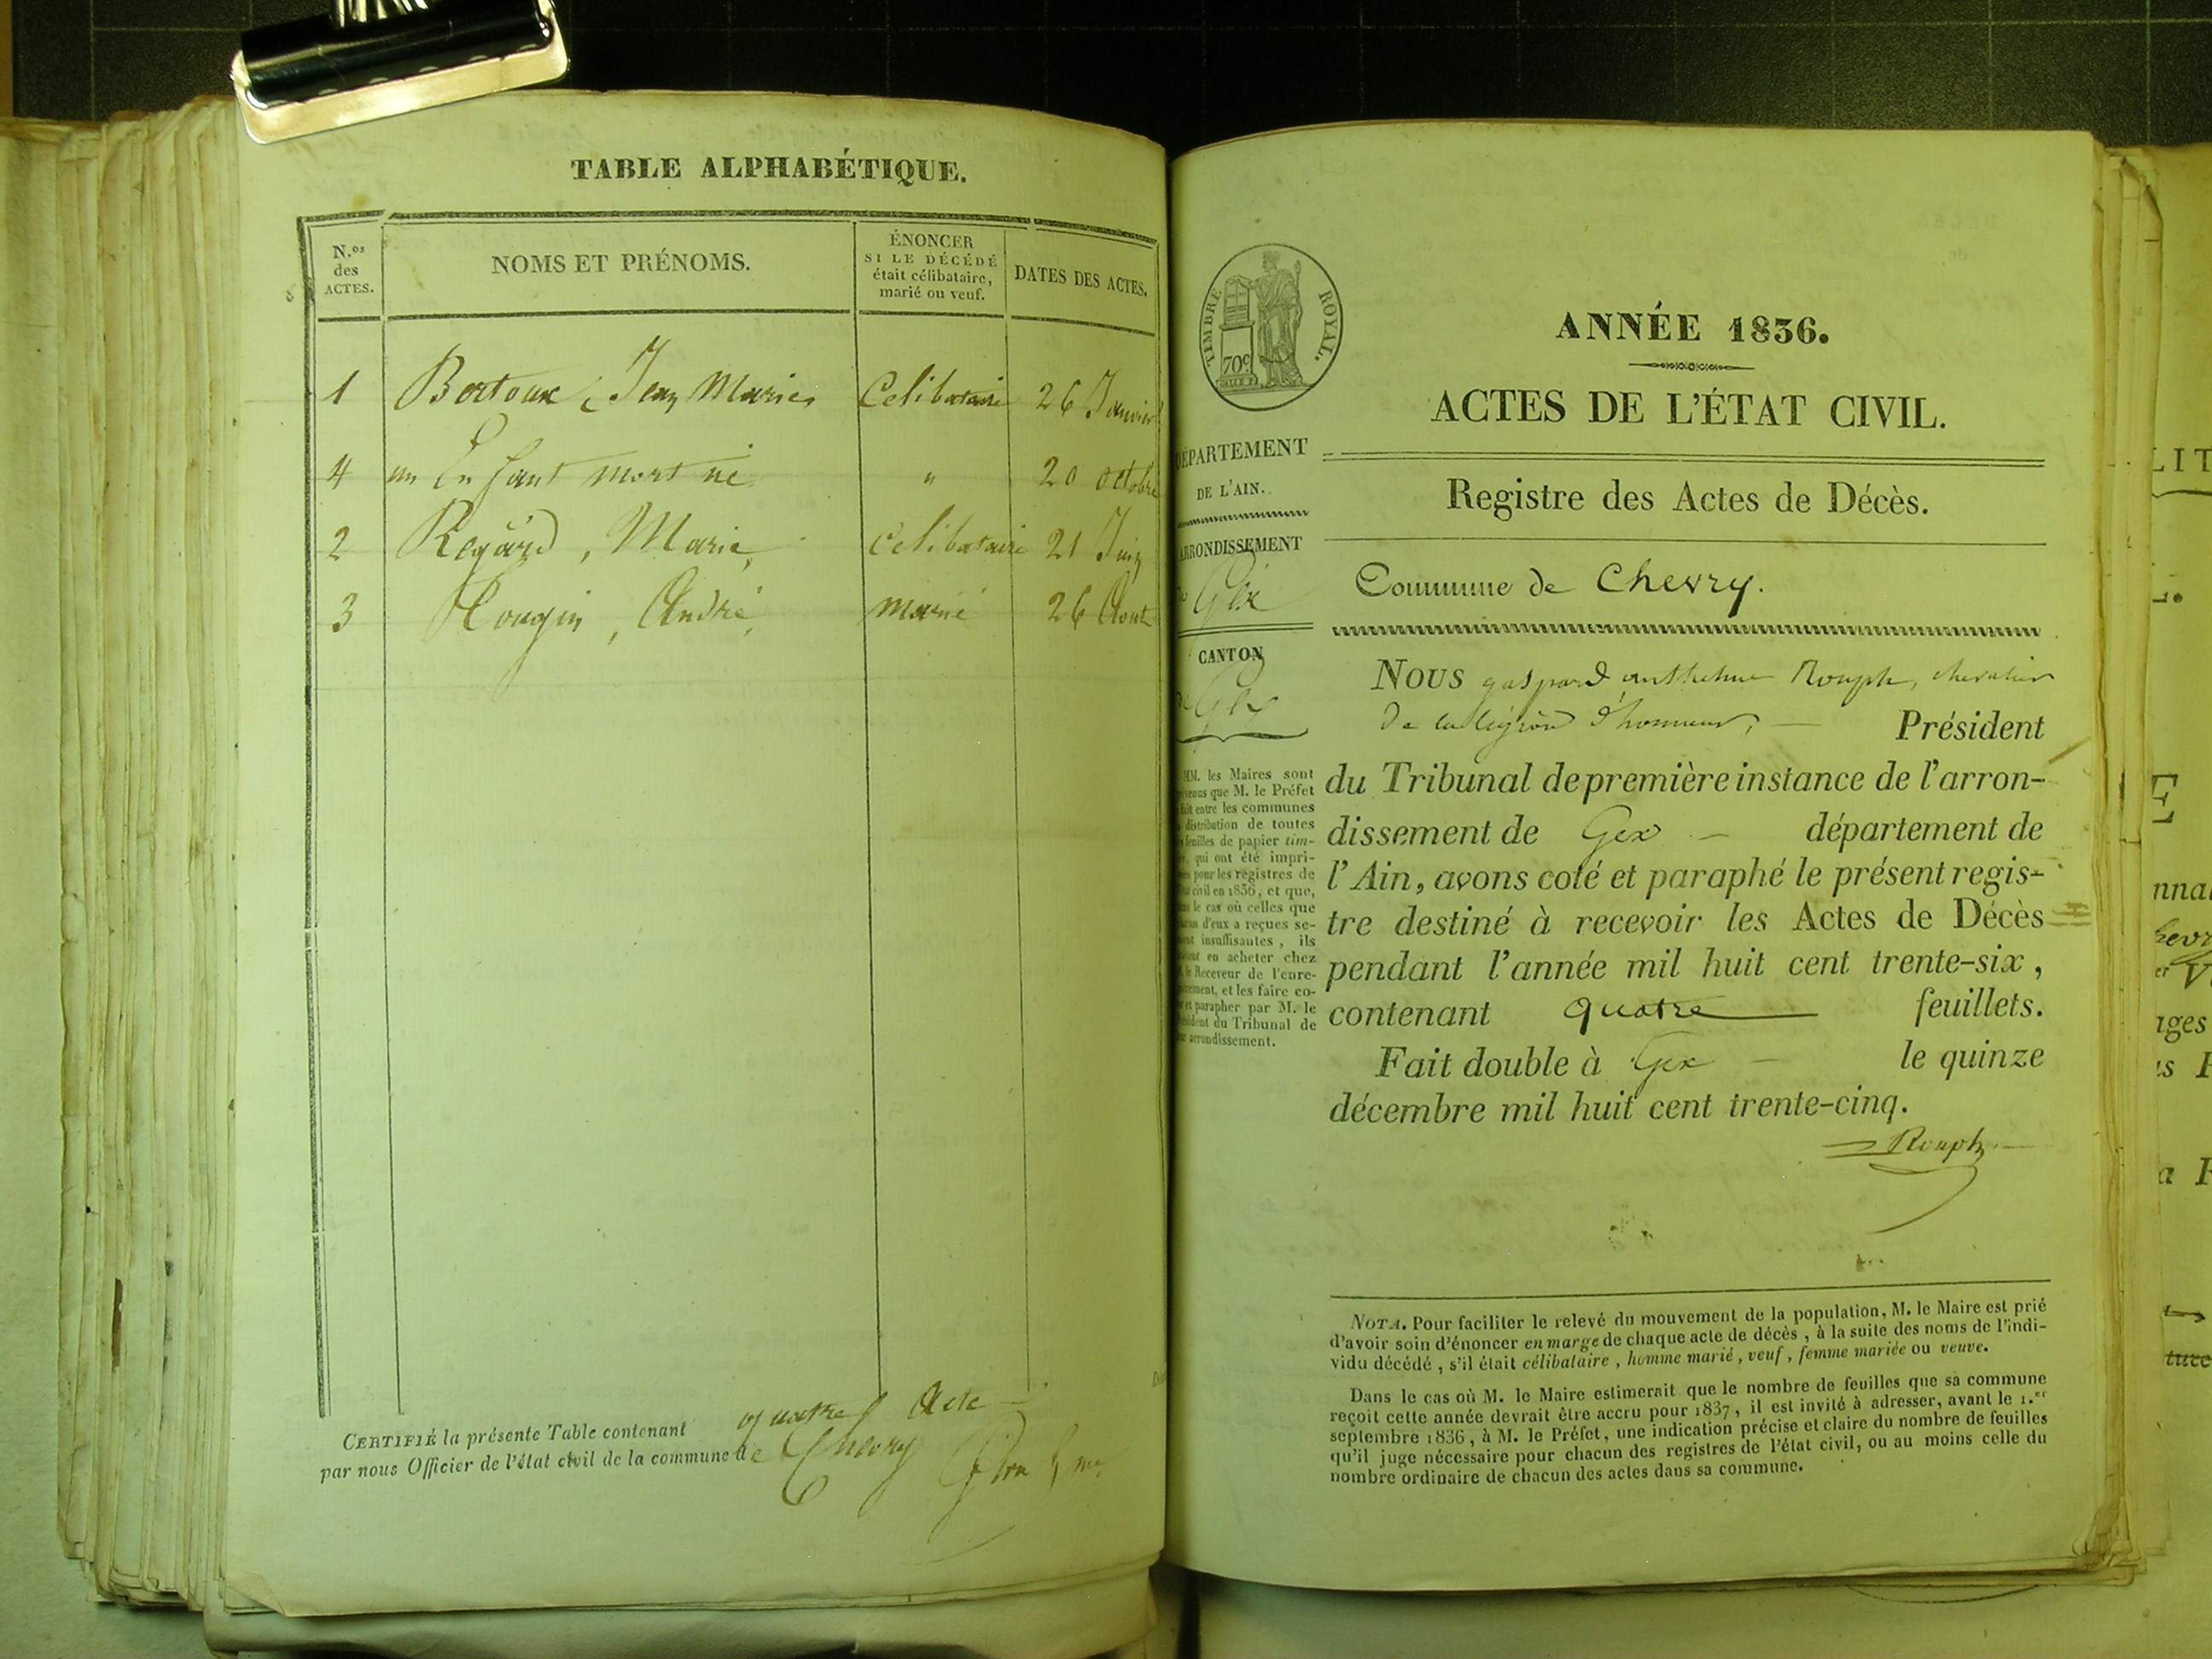 TABLE ALPHABÉTIQUE.
N.os des ACTES.
NOMS ET PRÉNOMS.
ÉNONCER
SI LE DÉCÉDÉ
était célibataire,
marié ou veuf.
DATES DES ACTES.
1 Bertoux, Jean Marie, Celibataire 26 Janvier
4 un Enfant mort né. " 20 octobre
2 Regard, Marie, celibataire 21 Juin
3 André, marié 26 Aout
CERTIFIÉ la présente Table contenant quatre Acte
par nous Officier de l'état civil de la commune de Chevry
TIMBRE ROYAL.
70c
DÉPARTEMENT
DE L'AIN.
ARRONDISSEMENT
de Gex
CANTON
de Gex
MM. les Maires sont
prévenus que M. le Préfet
fait entre les communes
distribution de toutes
feuilles de papier tim-
qui ont été impri-
pour les registres de
civil en 1836, et que,
le cas où celles que
d'eux a reçues se-
insuffisantes, ils
en acheter chez
le Receveur de l'enre-
et les faire co-
et parapher par M. le
Président du Tribunal de
arrondissement.
ANNÉE 1836.
ACTES DE L'ÉTAT CIVIL.
Registre des Actes de Décès.
Commune de Chevry.
NOUS gaspard anthelme Rouph, chevalier
De la légion d'honneur, — Président
du Tribunal de première instance de l'arron-
dissement de Gex – département de
l'Ain, avons coté et paraphé le présent regis-
tre destiné à recevoir les Actes de Décès
pendant l'année mil huit cent trente-six,
contenant quatre feuillets.
Fait double à Gex – le quinze
décembre mil huit cent trente-cinq.
Rouph
NOTA. Pour faciliter le relevé du mouvement de la population, M. le Maire est prié
d'avoir soin d'énoncer en marge de chaque acte de décès, à la suite des noms de l'indi-
vidu décédé, s'il était célibataire, homme marié, veuf, femme mariée ou veuve.
Dans le cas où M. le Maire estimerait que le nombre de feuilles que sa commune
reçoit cette année devrait être accru pour 1837, il est invité à adresser, avant le 1.er
septembre 1836, à M. le Préfet, une indication précise et claire du nombre de feuilles
qu'il juge nécessaire pour chacun des registres de l'état civil, ou au moins celle du
nombre ordinaire de chacun des actes dans sa commune.